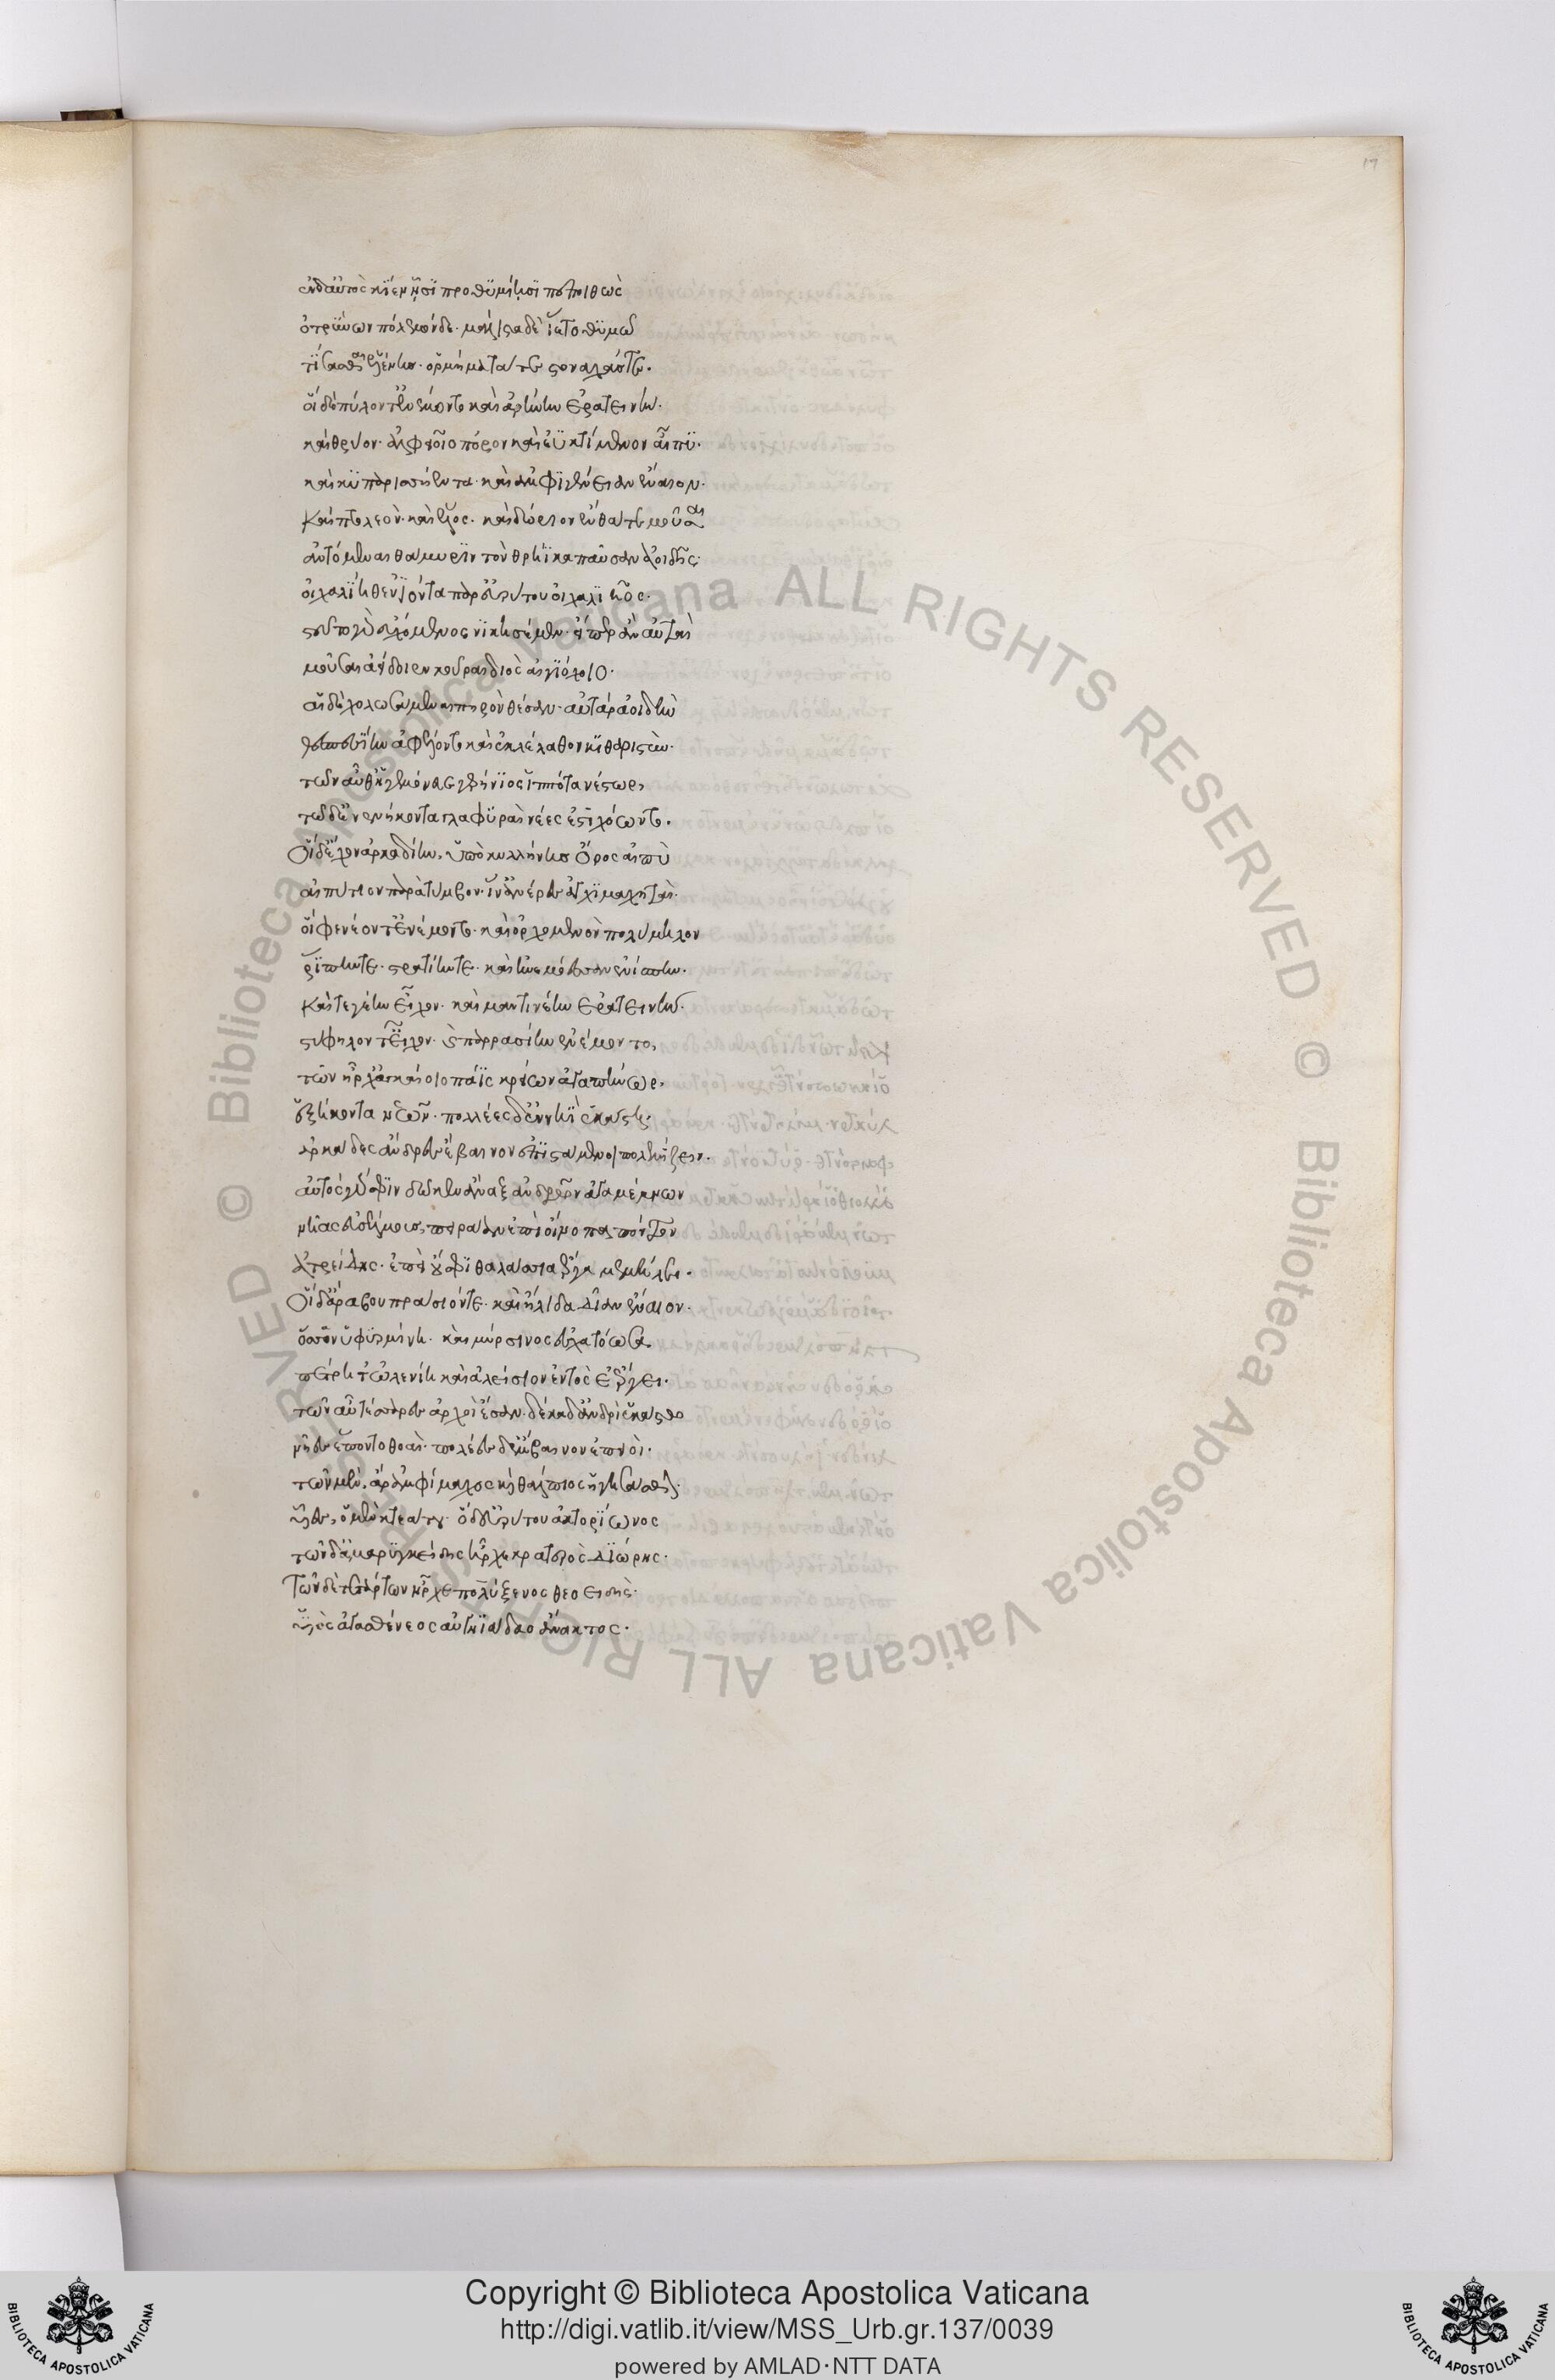 17
ἐν δ' αὐτὸς κίεν ᾗσι προθυμίῃσι πεποιθὼς
ὀτρύνων πόλεμον δέ· μάλιστα δὲ ἵετο θυμῷ
τίσασθαι ἑλένης· ὁρμήματά τε στοναχάς τε.
οἱ δὲ πύλον τ' ἐνέμοντο καὶ ἀρήνην ἐρατεινήν.
καὶ θρύον· ἀλφειοῖο πόρον καὶ ἐϋκτίμενον αἶπυ.
καὶ κυπαρισσήεντα· καὶ ἀμφιγένειαν ἔναιον.
καὶ πτελεὸν· καὶ ἕλος· καὶ δώριον ἔνθα τε μοῦσαι
ἀντόμεναι θάμυριν τὸν θρήϊκα παῦσαν ἀοιδῆς·
οἰχαλίηθεν ἰόντα παρ' εὐρύτου οἰχαλιῆος.
στεῦτο γὰρ εὐχόμενος νικησέμεν· εἴπερ ἂν αὐταὶ
μοῦσαι ἀείδοιεν κοῦραι διὸς αἰγιόχοιο.
αἱ δὲ χολωσάμεναι πηρὸν θέσαν· αὐτὰρ ἀοιδὴν
θεσπεσίην ἀφέλοντο καὶ ἐκλέλαθον κιθαριστύν.
τῶν αὖθ' ἡγεμόνευε γερήνιος ἱππότα νέστωρ,
τῷ δ' ἐνενήκοντα γλαφυραὶ νέες ἐστιχόωντο.
Οἳ δ' ἔχον ἀρκαδίην, ὑπὸ κυλλήνης ὄρος αἰπὺ
αἰπύτιον παρὰ τύμβον· ἵν' ἀνέρες ἀγχιμαχηταὶ·
οἳ φενεόν τ' ἐνέμοντο· καὶ ὀρχομενὸν πολύμηλον
ῥίπην τε· στρατίην τε· καὶ ἠνεμόεσσαν ἐνίσπην.
καὶ τεγέην εἶχον· καὶ μαντινέην ἐρατεινήν.
στύμφηλόν τ' εἶχον· καὶ παρρασίην ἐνέμοντο,
τῶν ἦρχ' ἀγκαίοιο πάϊς κρείων ἀγαπήνωρ,
ἑξήκοντα νεῶν· πολέες δ' ἐν νηῒ ἑκάστῃ·
ἀρκάδες ἄνδρες ἔβαινον ἐπιστάμενοι πολεμίζειν.
αὐτὸς γάρ σφιν δῶκεν ἄναξ ἀνδρῶν ἀγαμέμνων
νῆας ἐϋσέλμους, περάαν ἐπὶ οἴνοπα πόντον
ἀτρείδης· ἐπεὶ οὔ σφι θαλάσσια ἔργα μεμήλει.
Οἳ δ' ἄρα βουπράσιόν τε· καὶ ἤλιδα δῖαν ἔναιον.
ὅσσον ὑφ' ὑρμίνη· καὶ μύρσινος ἐσχατόωσα.
πέτρη τ' ὠλενίη καὶ ἀλείσιον ἐντὸς ἐέργει.
τῶν αὖ τέσσαρες ἀρχοὶ ἔσαν· δέκα δ' ἀνδρὶ ἑκάστῳ
νῆες ἕποντο θοαὶ· πολέες δ' ἔμβαινον ἐπειοὶ.
τῶν μὲν, ἄρ' ἀμφίμαχος καὶ θάλπιος ἡγησάσθην·
υἷες, ὁ μὲν κτεάτου· ὁ δ' εὐρύτου ἀκτορίωνος
τῶν δ' ἀμαρυγκείδης ἦρχε κρατερὸς διώρης·
Τῶν δὲ τετάρτων ἦρχε πολύξενος θεοειδὴς·
υἱὸς ἀγασθένεος αὐγηϊάδαο ἄνακτος.
Copyright © Biblioteca Apostolica Vaticana
http://digi.vatlib.it/view/MSS_Urb.gr.137/0039
powered by AMLAD·NTT DATA